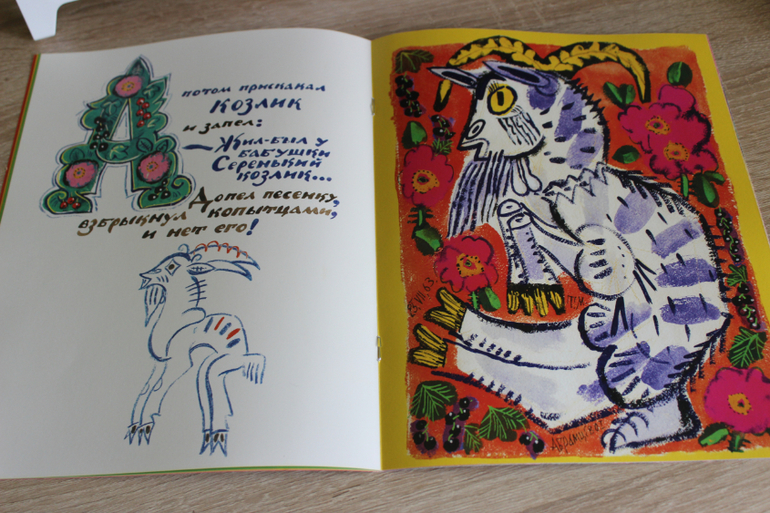 А
потом прискакал
козлик
и запел:
— Жил-был у
бабушки
Серенький
козлик...
Допел песенку,
взбрыкнул копытцами,
и нет его!
Т.М.
Абрамцево